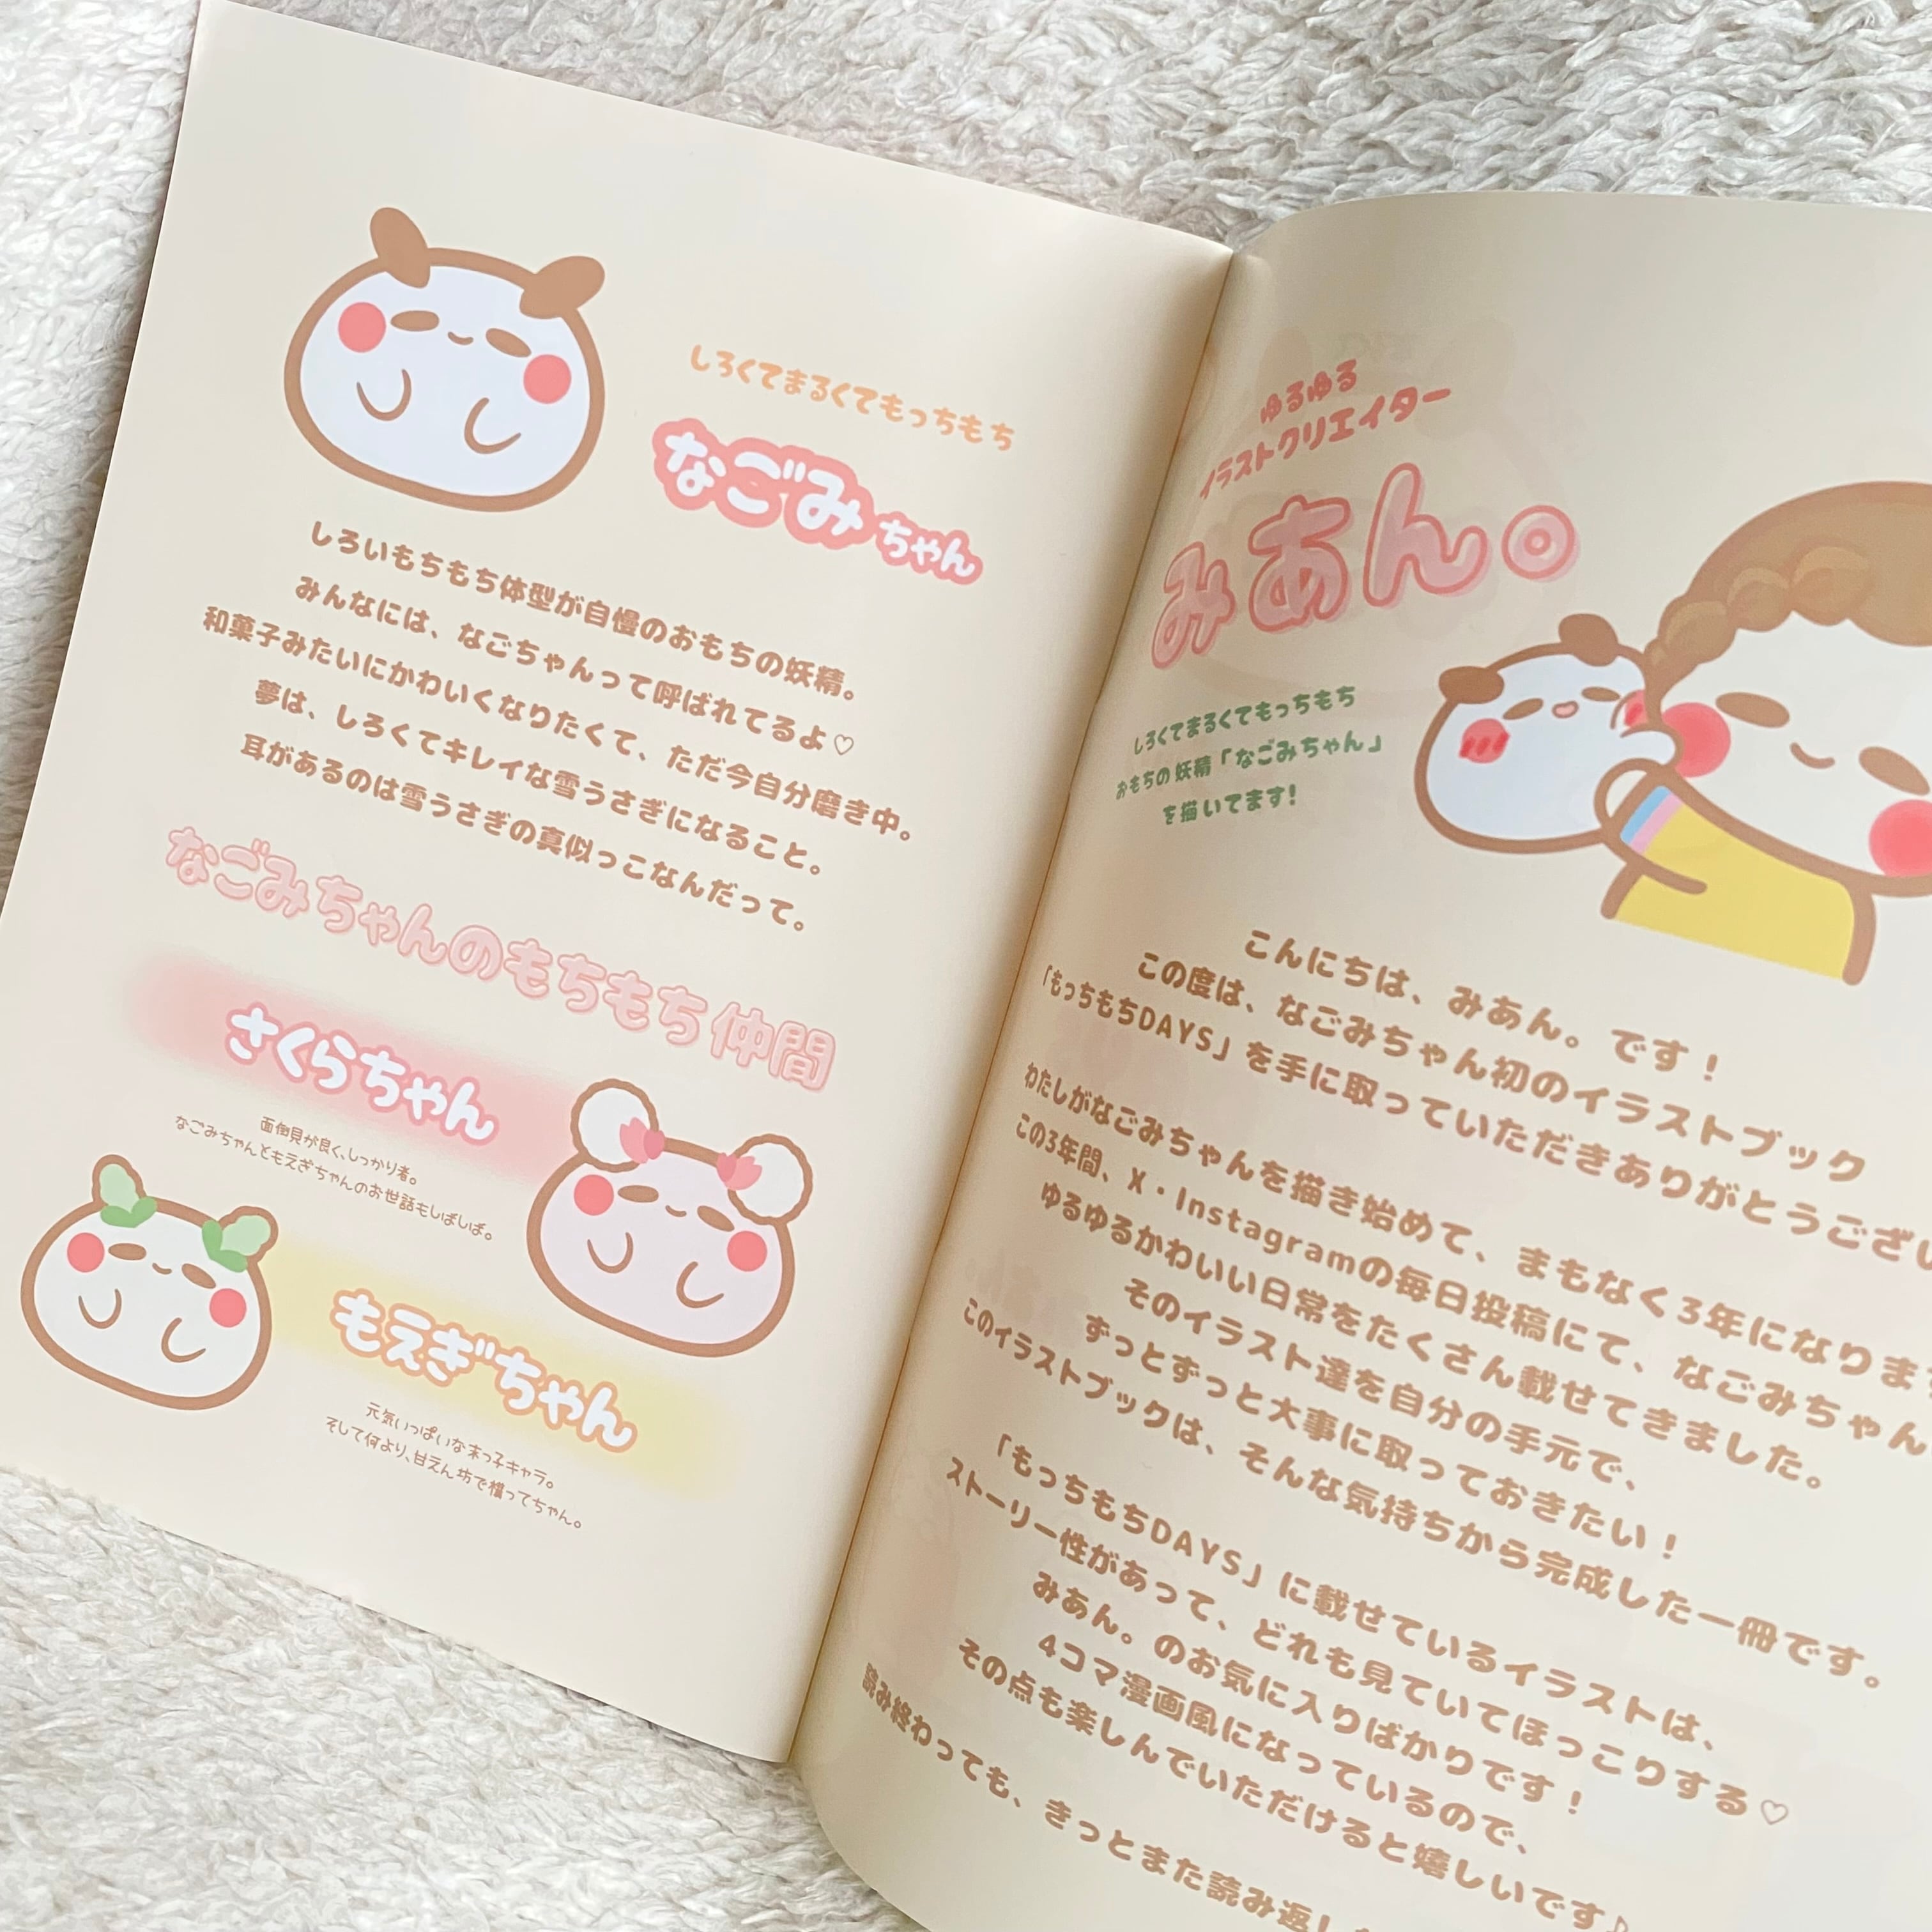 しろくてまるくてもっちもち
なごみちゃん
しろいもちもち体型が自慢のおもちの妖精。
みんなには、なごちゃんって呼ばれてるよ♡
和菓子みたいにかわいくなりたくて、ただ今自分磨き中。
夢は、しろくてキレイな雪うさぎになること。
耳があるのは雪うさぎの真似っこなんだって。
なごみちゃんのもちもち仲間
さくらちゃん
面倒見が良く、しっかり者。
なごみちゃんともえぎちゃんのお世話もしばしば。
もえぎちゃん
元気いっぱいな末っ子キャラ。
そして何より、甘えん坊で構ってちゃん。
ゆるゆる
イラストクリエイター
みあん。
しろくてまるくてもっちもち
おもちの妖精「なごみちゃん」
を描いてます!
こんにちは、みあん。です！
この度は、なごみちゃん初のイラストブック
「もっちもちDAYS」を手に取っていただきありがとうござい
わたしがなごみちゃんを描き始めて、まもなく3年になりま
この3年間、X・Instagramの毎日投稿にて、なごみちゃん
ゆるゆるかわいい日常をたくさん載せてきました。
そのイラスト達を自分の手元で、
ずっとずっと大事に取っておきたい！
このイラストブックは、そんな気持ちから完成した一冊です。
「もっちもちDAYS」に載せているイラストは、
ストーリー性があって、どれも見ていてほっこりする♡
みあん。のお気に入りばかりです！
4コマ漫画風になっているので、
その点も楽しんでいただけると嬉しいです♪
読み終わっても、きっとまた読み返し